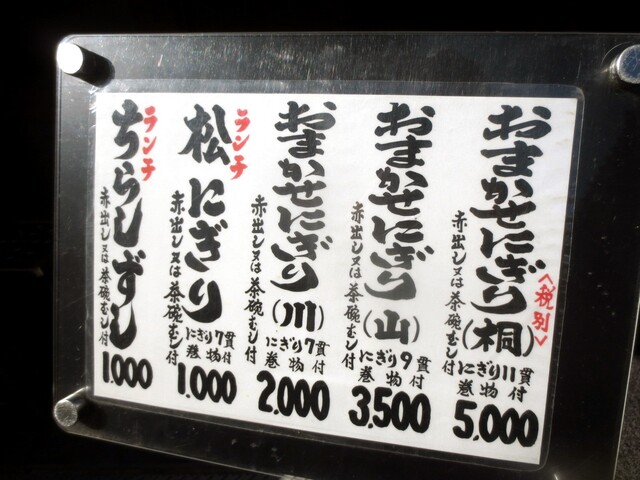 おまかせにぎり(桐)
<税別>
赤出し又は茶碗むし付
にぎり11貫
巻物付
5,000
おまかせにぎり(山)
赤出し又は茶碗むし付
にぎり9貫
巻物付
3,500
おまかせにぎり(川)
赤出し又は茶碗むし付
にぎり7貫
巻物付
2,000
ランチ
松にぎり
赤出し又は茶碗むし付
にぎり7貫
巻物付
1,000
ランチ
ちらしずし
赤出し又は茶碗むし付
1,000